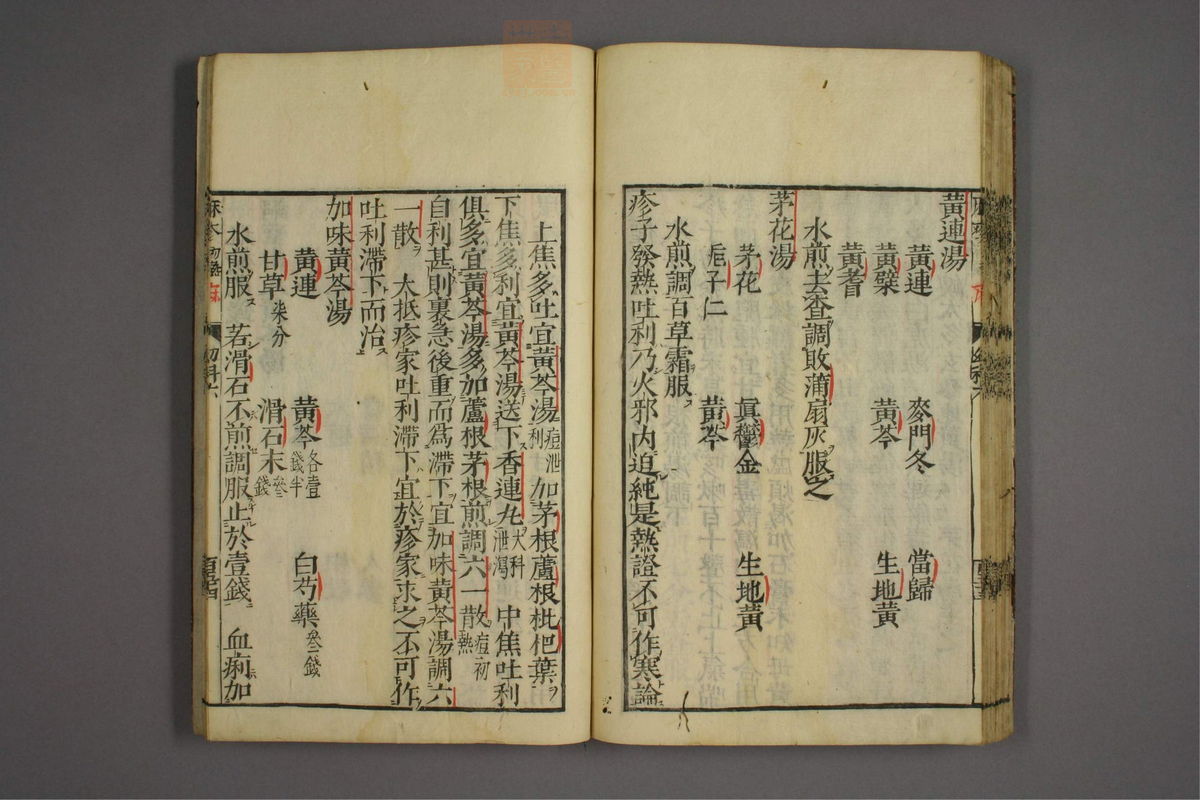 黄連湯
黄連　麥門冬　當歸
黄蘗　黄芩　生地黄
黄耆
水煎去査調敗蒲扇灰服之
茅花湯
茅花　眞鬱金　生地黄
梔子仁　黄芩
水煎調百草霜服ス
疹子發熱吐利乃火邪内迫純是熱證不可作寒論
上焦多吐宜黄芩湯痘泄利加茅根蘆根枇杷葉ヲ
下焦多利宜黄芩湯送下香連丸大科泄瀉　中焦吐利
俱多宜黄芩湯多加蘆根茅根煎調六一散痘初熱
自利甚則裏急後重而爲滯下宜加味黄芩湯調六
一散ヲ　大抵疹家吐利滯下宜於疹家求之不可作
吐利滯下而治ス
加味黄芩湯
黄連　黄芩各壹錢半　白芍藥叄錢
甘草柒分　滑石末叄錢
水煎服ス　若滑石不煎調服止於壹錢　血痢加
幼科六